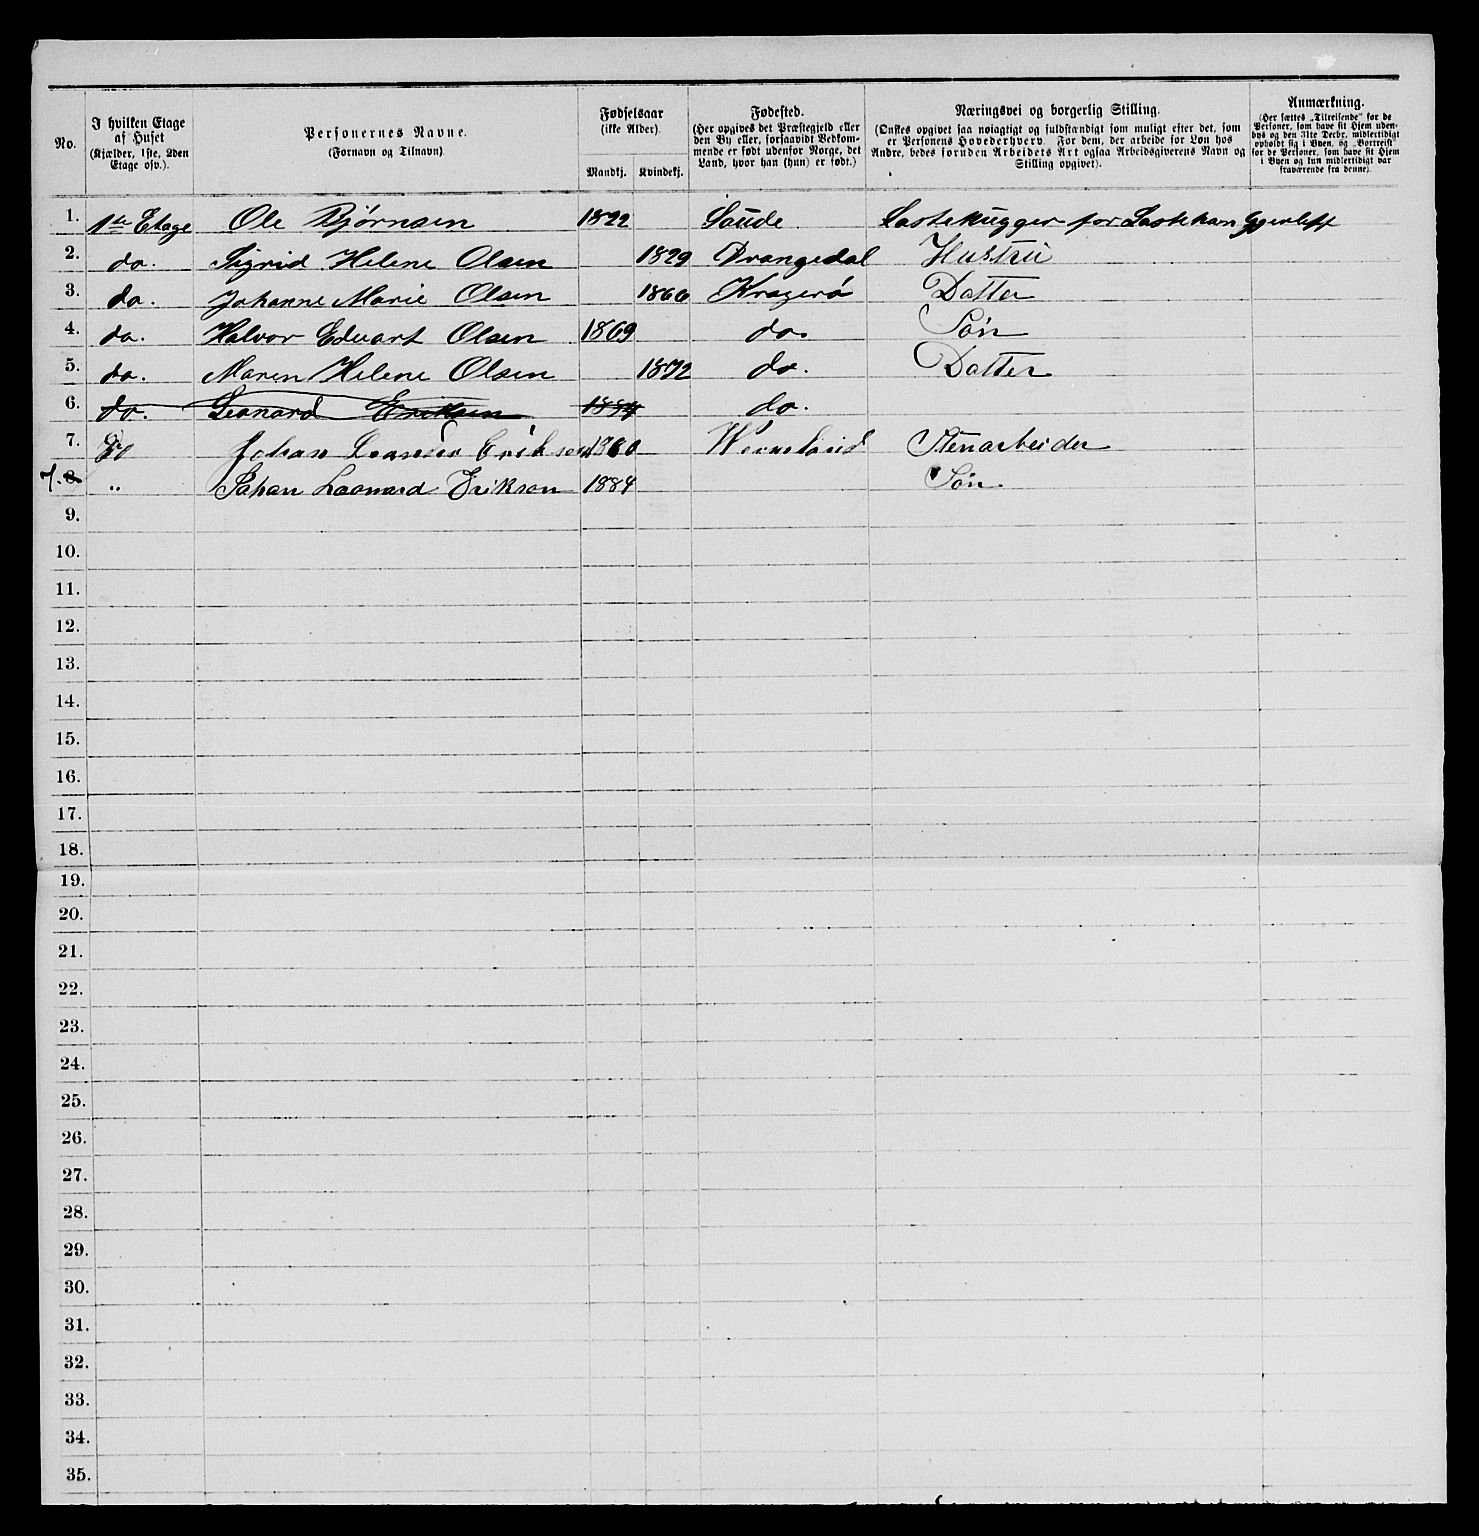 No.
I hvilken Etage
af Huset
(Kjælder, 1ste, 2den
Etage osv.).
Personernes Navne.
(Fornavn og Tilnavn).
Fødselsaar
(ikke Alder).
Mandkj. Kvindekj.
Fødested.
(Her opgives det Præstegjeld eller
den By eller, forsaavidt Vedkom-
mende er født udenfor Norge, det
Land, hvor han (hun) er født.)
Næringsvei og borgerlig Stilling.
(Ønskes opgivet saa nøiagtigt og fuldstændigt som muligt efter det, som
er Personens Hovederhverv. For dem, der arbeide for Løn hos
Andre, bedes foruden Arbeidets Art ogsaa Arbeidsgiverens Navn og
Stilling opgivet).
Anmærkning.
(Her sættes „Tilreisende" for de
Personer, som have sit Hjem uden-
bys og den 31te Decbr. midlertidigt
opholdt sig i Byen, og „Bortreist"
for de Personer, som have sit Hjem
i Byen og kun midlertidigt var
fraværende fra denne).
1. 1ste Etage Ole Bjørnsen 1822 Saude. Lastehugger for Lastehan
2. do. Sigrid Helene Olsen 1829 Drangedal Hustru
3. do. Johanne Marie Olsen 1866 Kragerø Datter
4. do. Halvor Edvart Olsen 1869 do. Søn
5. do. Maren Helene Olsen 1872 do. Datter
6. do. Leonard Eriksen 1884 do.
7. Do Johan Leander Eriksen 1860 Wermland Stenarbeider
7. 8. „ Johan Leonard Erikson 1884 Søn
9.
10.
11.
12.
13.
14.
15.
16.
17.
18.
19.
20.
21.
22.
23.
24.
25.
26.
27.
28.
29.
30.
31.
32.
33.
34.
35.